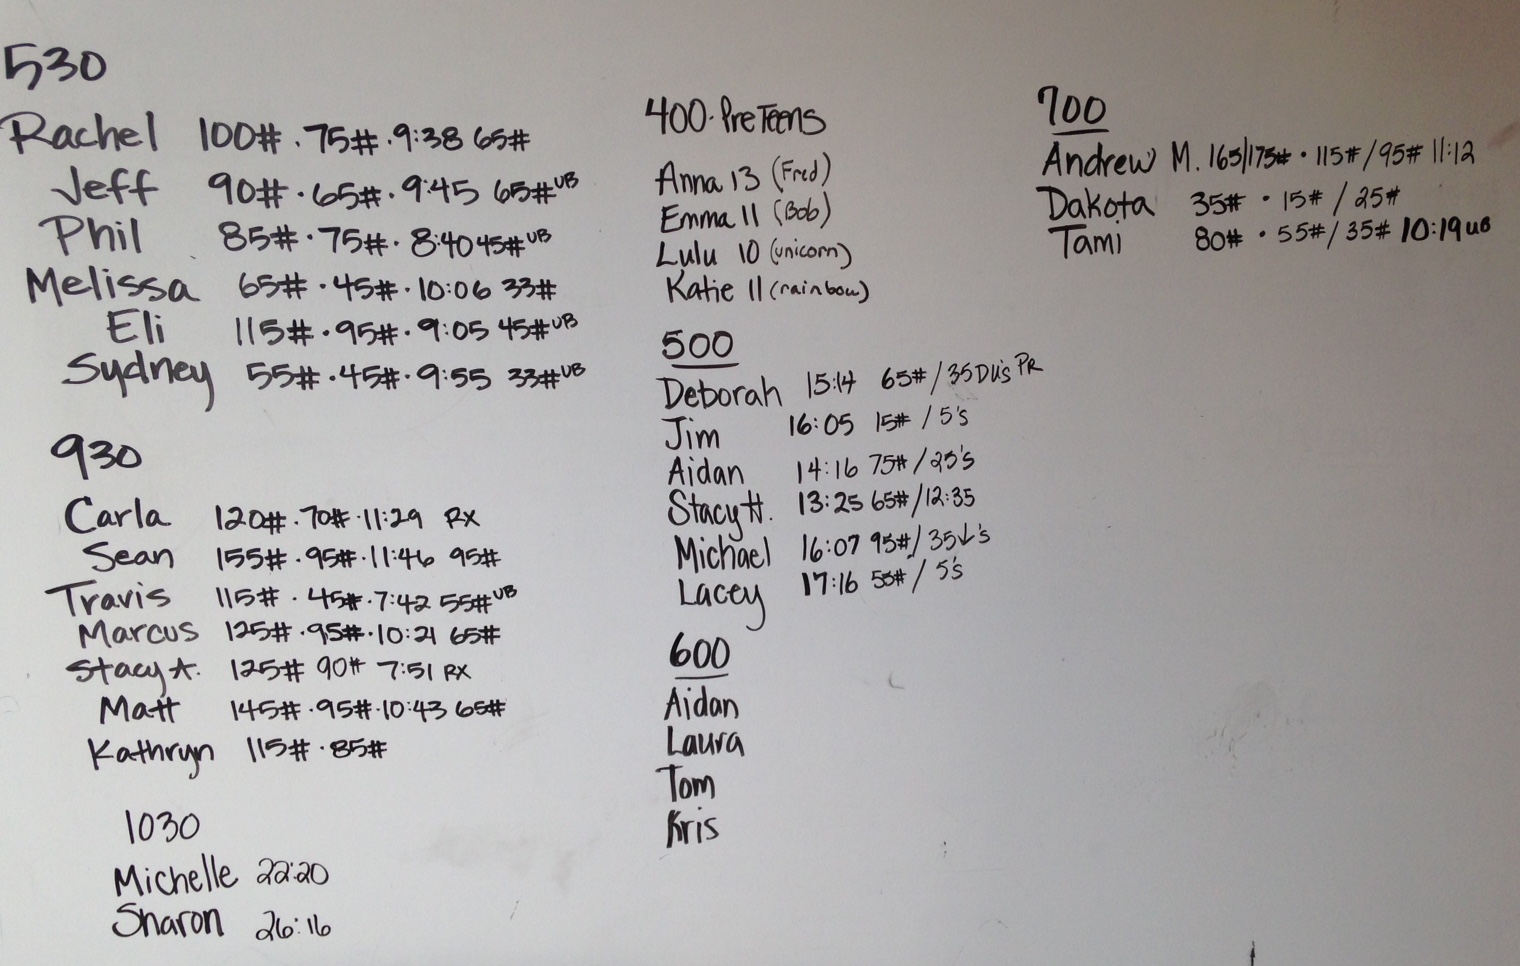 530
Rachel 100# · 75# · 9:38 65#
Jeff 90# · 65# · 9:45 65# UB
Phil 85# · 75# · 8:40 45# UB
Melissa 65# · 45# · 10:06 33#
Eli 115# · 95# · 9:05 45# UB
Sydney 55# · 45# · 9:55 33# UB
930
Carla 120# · 70# · 11:29 RX
Sean 155# · 95# · 11:46 95#
Travis 115# · 45# · 7:42 55# UB
Marcus 125# · 95# · 10:21 65#
Stacy A. 125# 90# 7:51 RX
Matt 145# · 95# · 10:43 65#
Kathryn 115# · 85#
1030
Michelle 22:20
Sharon 26:16
400 · PreTeens
Anna 13 (Fred)
Emma 11 (Bob)
Lulu 10 (unicorn)
Katie 11 (rainbow)
500
Deborah 15:14 65# / 35 DU's PR
Jim 16:05 15# / 5's
Aidan 14:16 75# / 25's
Stacy H. 13:25 65# / 12:35
Michael 16:07 95# / 35↓'s
Lacey 17:16 55# / 5's
600
Aidan
Laura
Tom
Kris
700
Andrew M. 165/175# · 115# / 95# 11:12
Dakota 35# · 15# / 25#
Tami 80# · 55# / 35# 10:19 UB